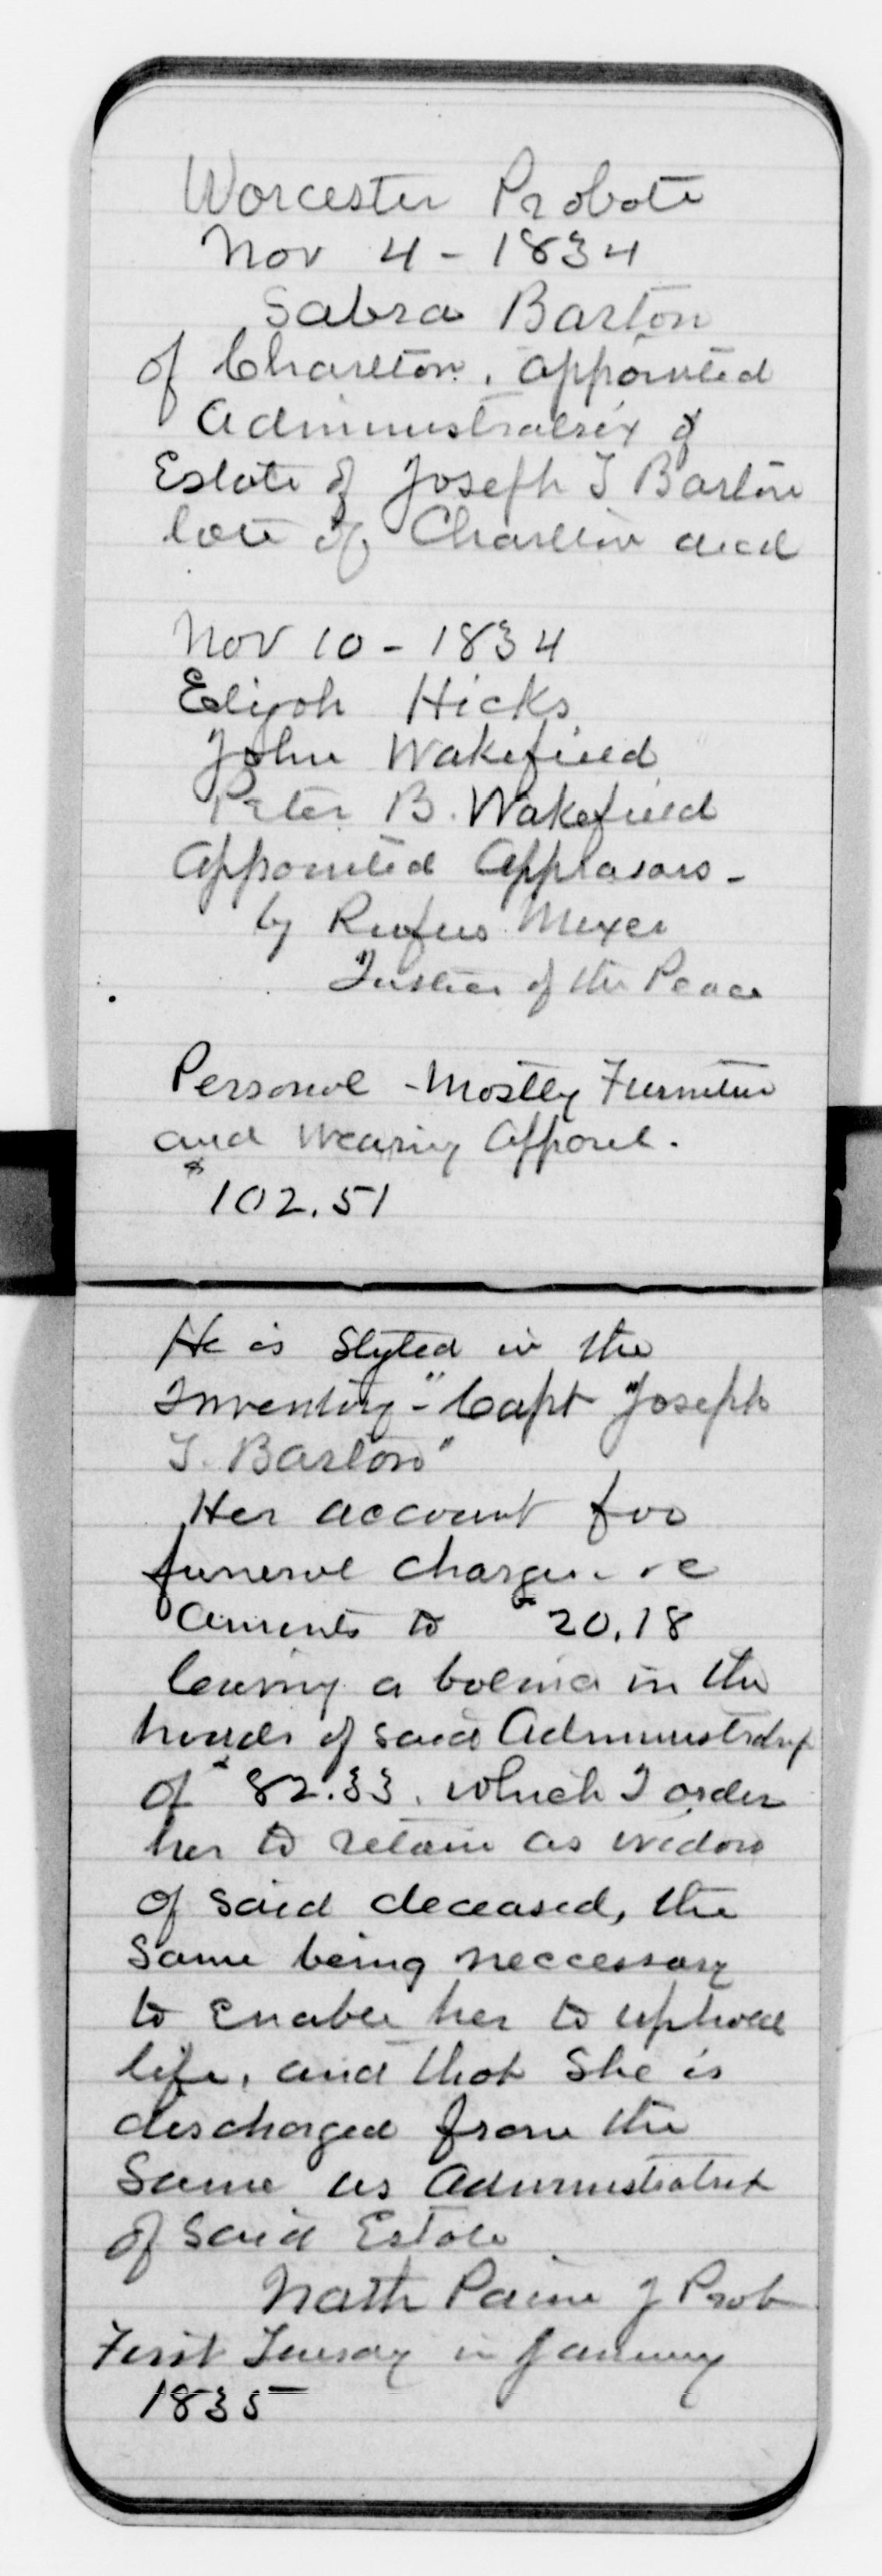 Worcester Probate
Nov 4 - 1834
Sabra Barton
of Charlton, appointed
Administratrix of
Estate of Joseph T Barton
late of Charlton decd
Nov 10 - 1834
Elijah Hicks
John Wakefield
Peter B. Wakefield
Appointed Apprasars -
by Rufus Mixer
Justice of the Peace
Personal - Mostly Furniture
and Wearing Apparel.
$102.51
He is Styled in the
Inventory - "Capt Joseph
T. Barton"
Her account for
funeral charges &c
amounts to $20.18
leaving a balance in the
hands of said Administratrix
of $82.33. which I order
her to retain as widow
of said deceased, the
same being neccessary
to enable her to uphold
life, and that She is
discharged from the
Same as Administratrix
of said Estate
Nath Paine J Prob
First Tuesay in January
1835